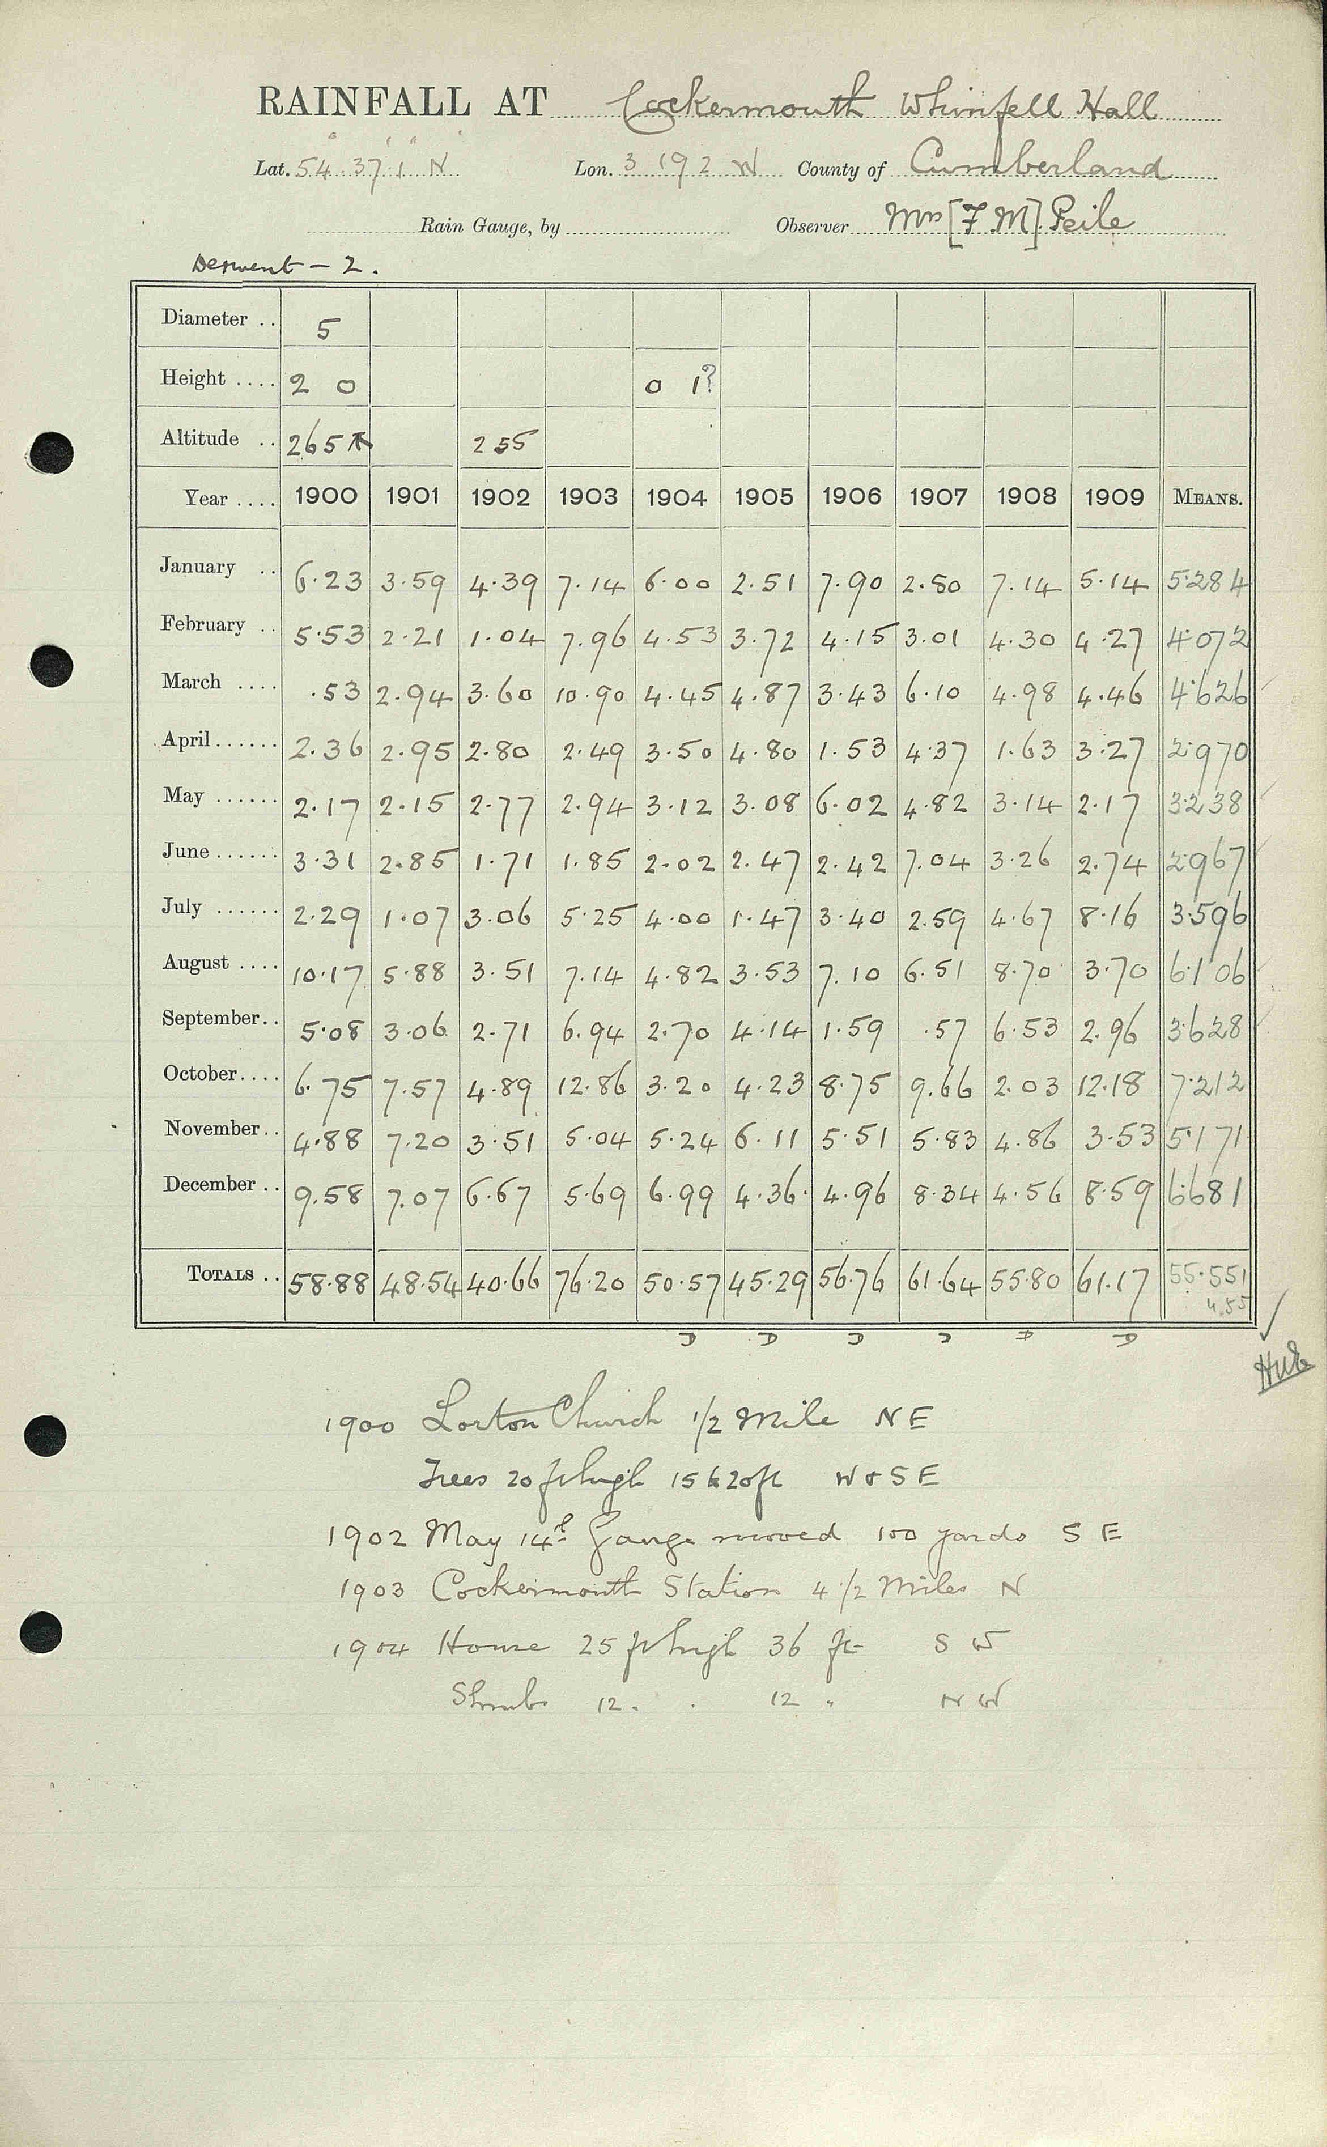 RAINFALL AT Cockermouth Whinfell Hall
Lat. 54° 37' 1" N Lon. 3 19 2 W County of Cumberland
Rain Gauge, by Observer Mrs [F M] Peile
Derwent - 2.
Diameter .. 5
Height .... 2 0 0 1?
Altitude .. 265 255
Year .... 1900 1901 1902 1903 1904 1905 1906 1907 1908 1909 MEANS.
January .. 6.23 3.59 4.39 7.14 6.00 2.51 7.90 2.80 7.14 5.14 5.284
February .. 5.53 2.21 1.04 7.96 4.53 3.72 4.15 3.01 4.30 4.27 4.072
March .... .53 2.94 3.60 10.90 4.45 4.87 3.43 6.10 4.98 4.46 4.626
April...... 2.36 2.95 2.80 2.49 3.50 4.80 1.53 4.37 1.63 3.27 2.970
May ...... 2.17 2.15 2.77 2.94 3.12 3.08 6.02 4.82 3.14 2.17 3.238
June...... 3.31 2.85 1.71 1.85 2.02 2.47 2.42 7.04 3.26 2.74 2.967
July ...... 2.29 1.07 3.06 5.25 4.00 1.47 3.40 2.59 4.67 8.16 3.596
August .... 10.17 5.88 3.51 7.14 4.82 3.53 7.10 6.51 8.70 3.70 6.106
September.. 5.08 3.06 2.71 6.94 2.70 4.14 1.59 .57 6.53 2.96 3.628
October.... 6.75 7.57 4.89 12.86 3.20 4.23 8.75 9.66 2.03 12.18 7.212
November.. 4.88 7.20 3.51 5.04 5.24 6.11 5.51 5.83 4.86 3.53 5.171
December .. 9.58 7.07 6.67 5.69 6.99 4.36 4.96 8.34 4.56 8.59 6.681
TOTALS .. 58.88 48.54 40.66 76.20 50.57 45.29 56.76 61.64 55.80 61.17 55.551
D D D D D
1900 Lorton Church 1/2 Mile NE
Trees 20 ft high 15 to 20 ft W & SE
1902 May 14th Gauge moved 100 yards S E
1903 Cockermouth Station 4 1/2 Miles N
1904 House 25 ft high 36 ft S W
Shrubs 12 . . 12 . N W